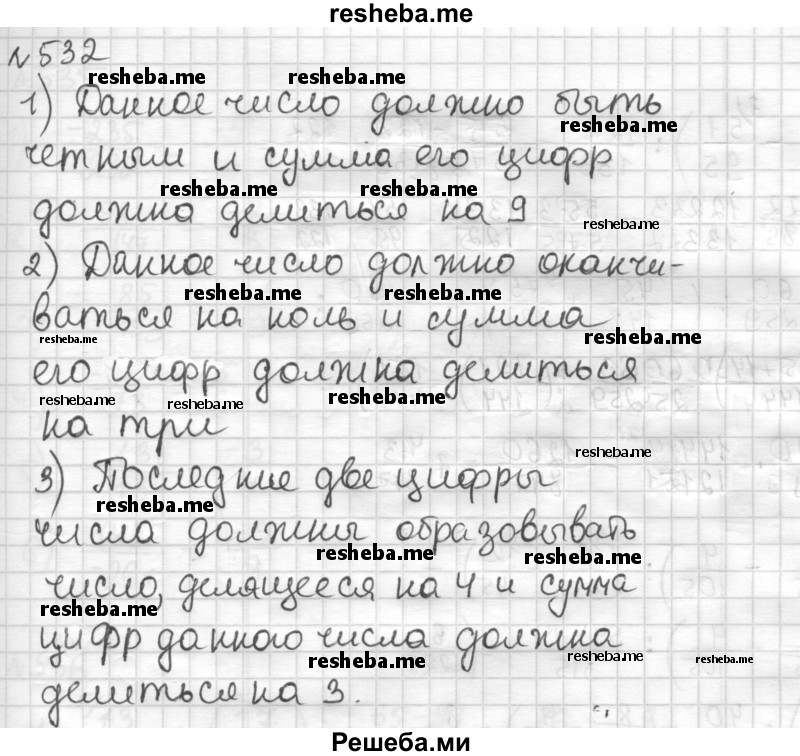 resheba.me
№532
resheba.me resheba.me
1) Данное число должно быть
resheba.me
четным и сумма его цифр
resheba.me resheba.me
должна делиться на 9
resheba.me
2) Данное число должно оканчи-
resheba.me resheba.me
ваться на ноль и сумма
resheba.me resheba.me
его цифр должна делиться
resheba.me resheba.me resheba.me
на три
resheba.me
3) Последние две цифры
resheba.me
числа должны образовывать
resheba.me resheba.me
число, делящееся на 4 и сумма
resheba.me
цифр данного числа должна
resheba.me resheba.me resheba.me
делиться на 3.
Решеба.ми